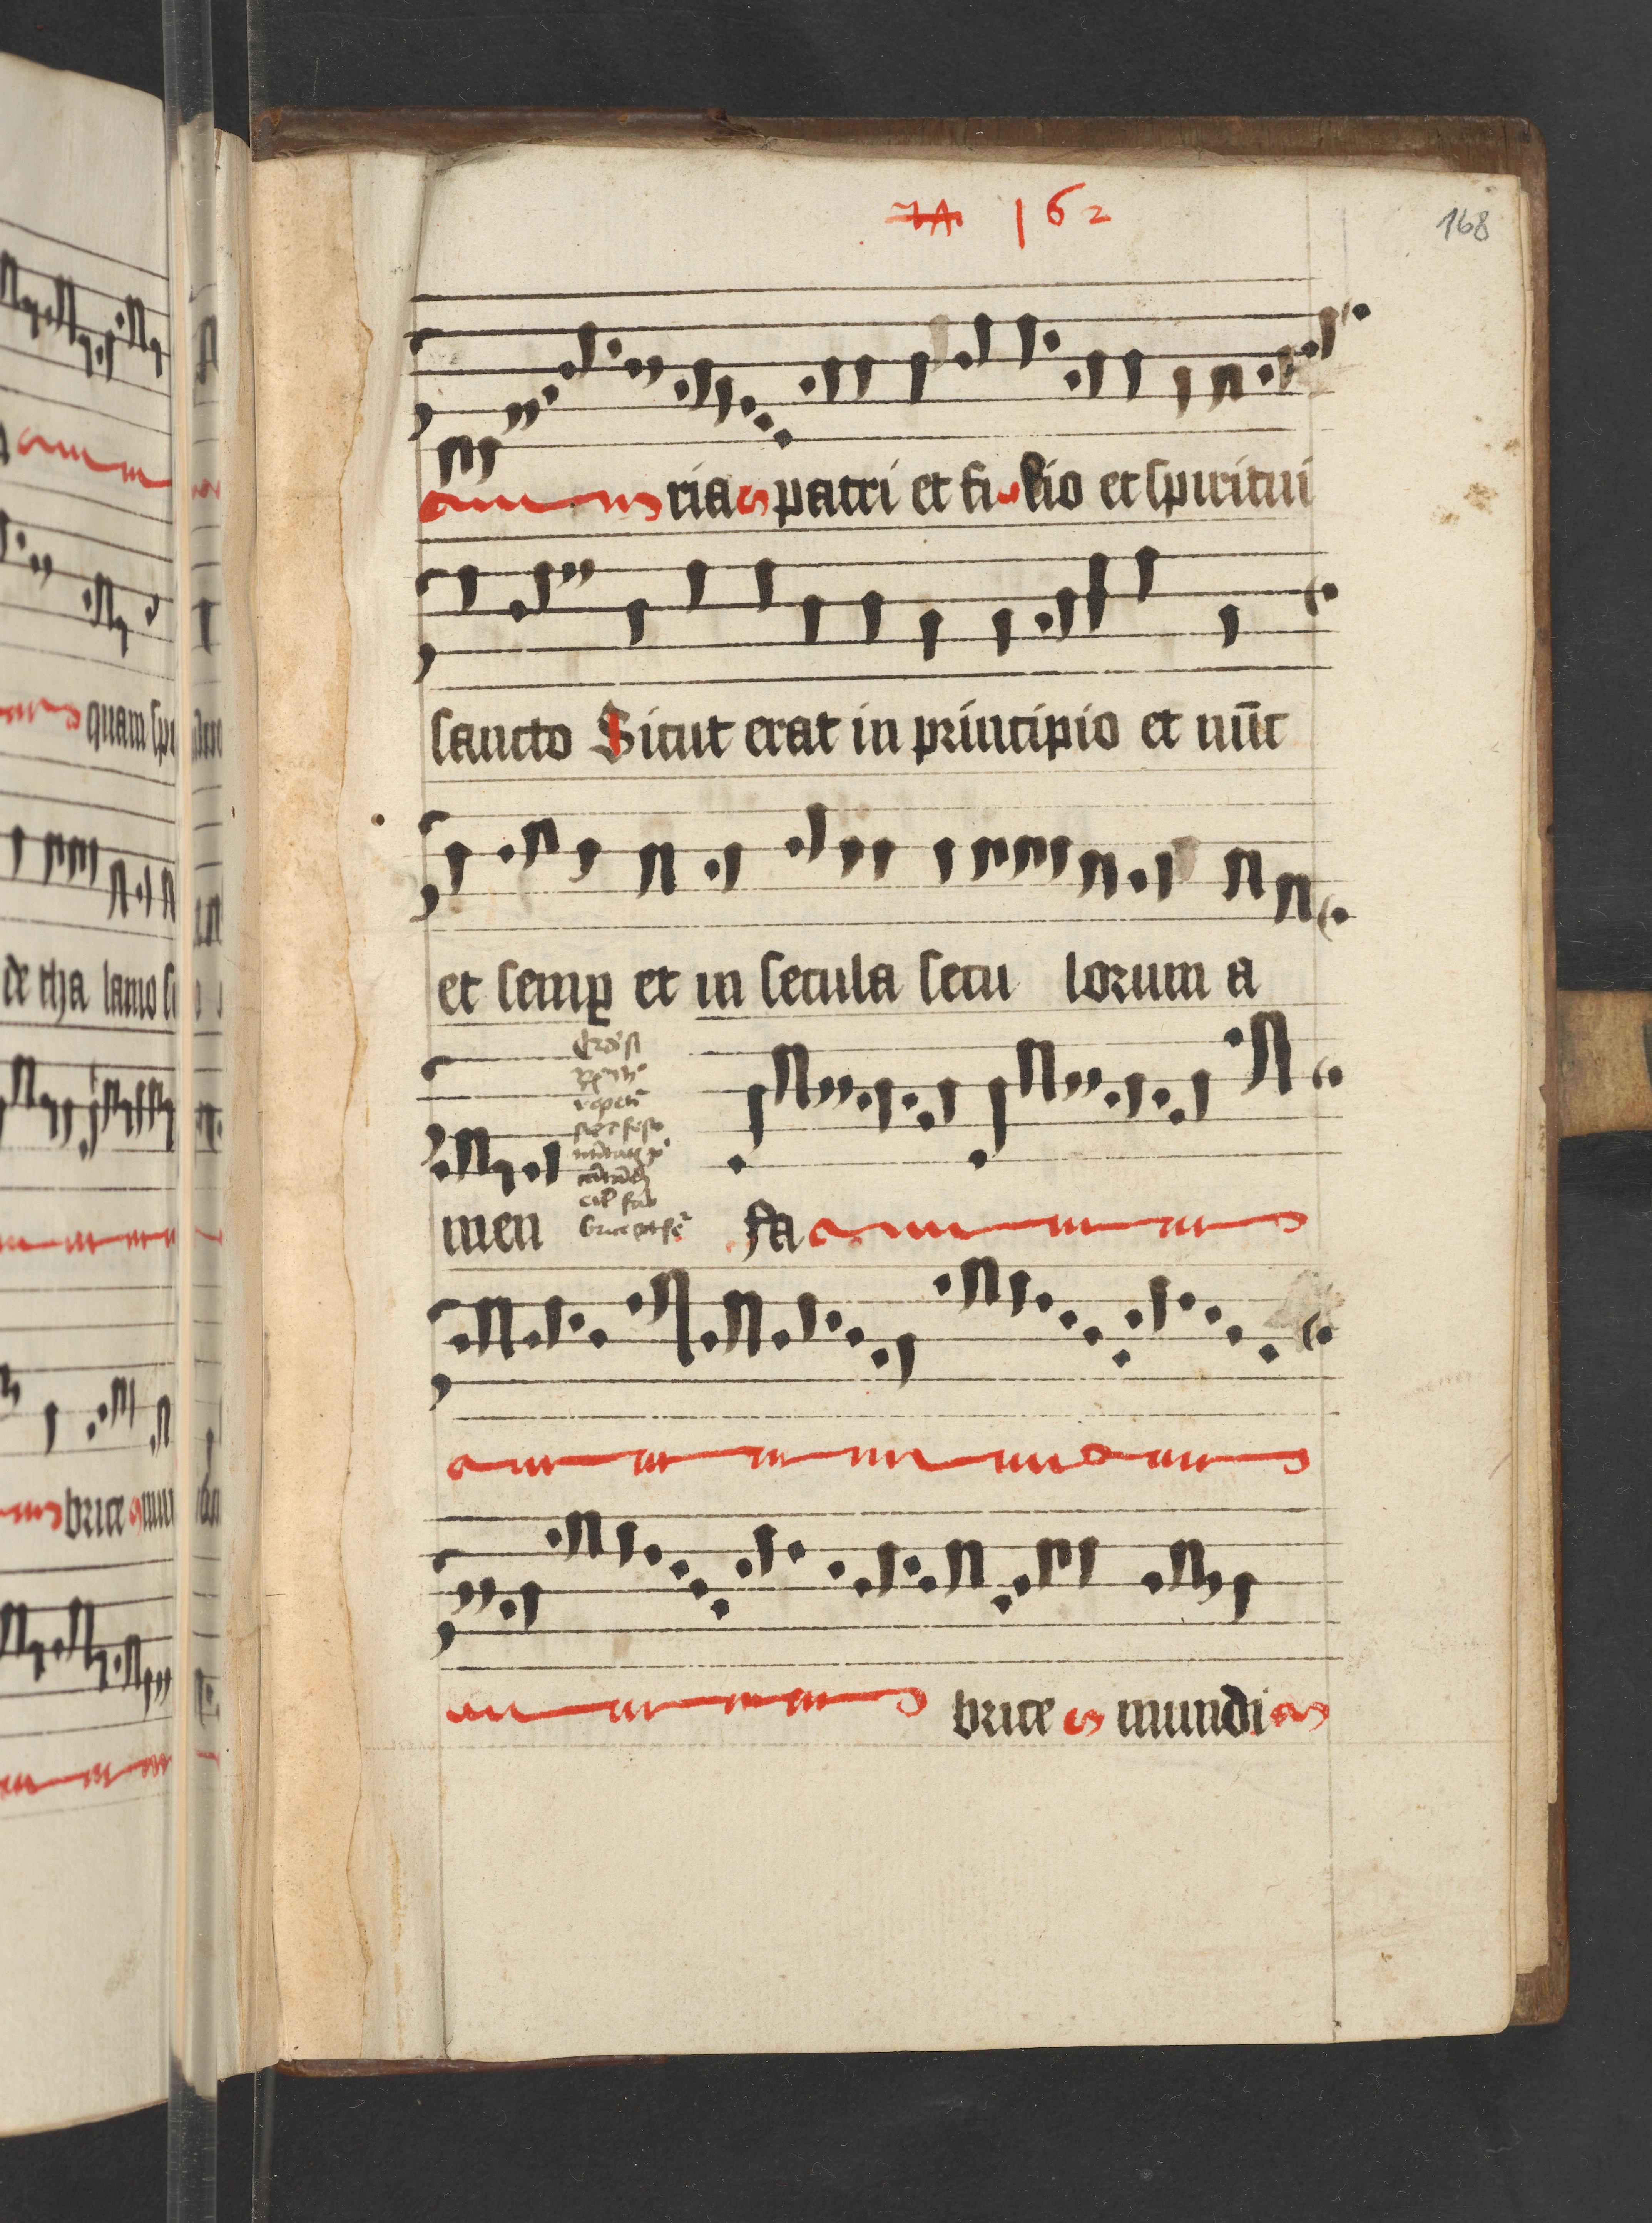 162
168
ria patri et fi lio et spiritui
sancto Sicut erat in principio et nūc
et semꝑ et in secula secu lorum a
men fa
brice mundi
quam spi
de tha lamo
brice mun